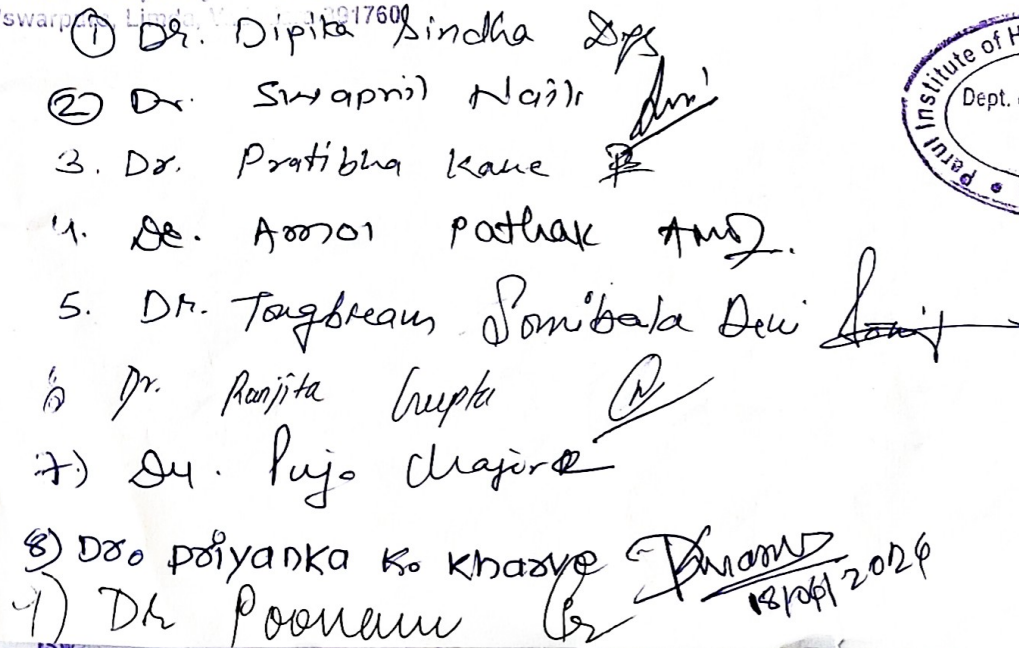 Limda, 391760
① Dr. Dipika Sindha
② Dr. Swapnil Naik
3. Dr. Pratibha Kane
4. Dr. Amol Pathak
5. Dr. Tongbream Somibala Devi
6 Dr. Ranjita Gupta
7) Dr. Puja
8) Dr. Priyanka K. Kharve
18/06/2024
9) Dr Poonam
Parul Institute of H
Dept.